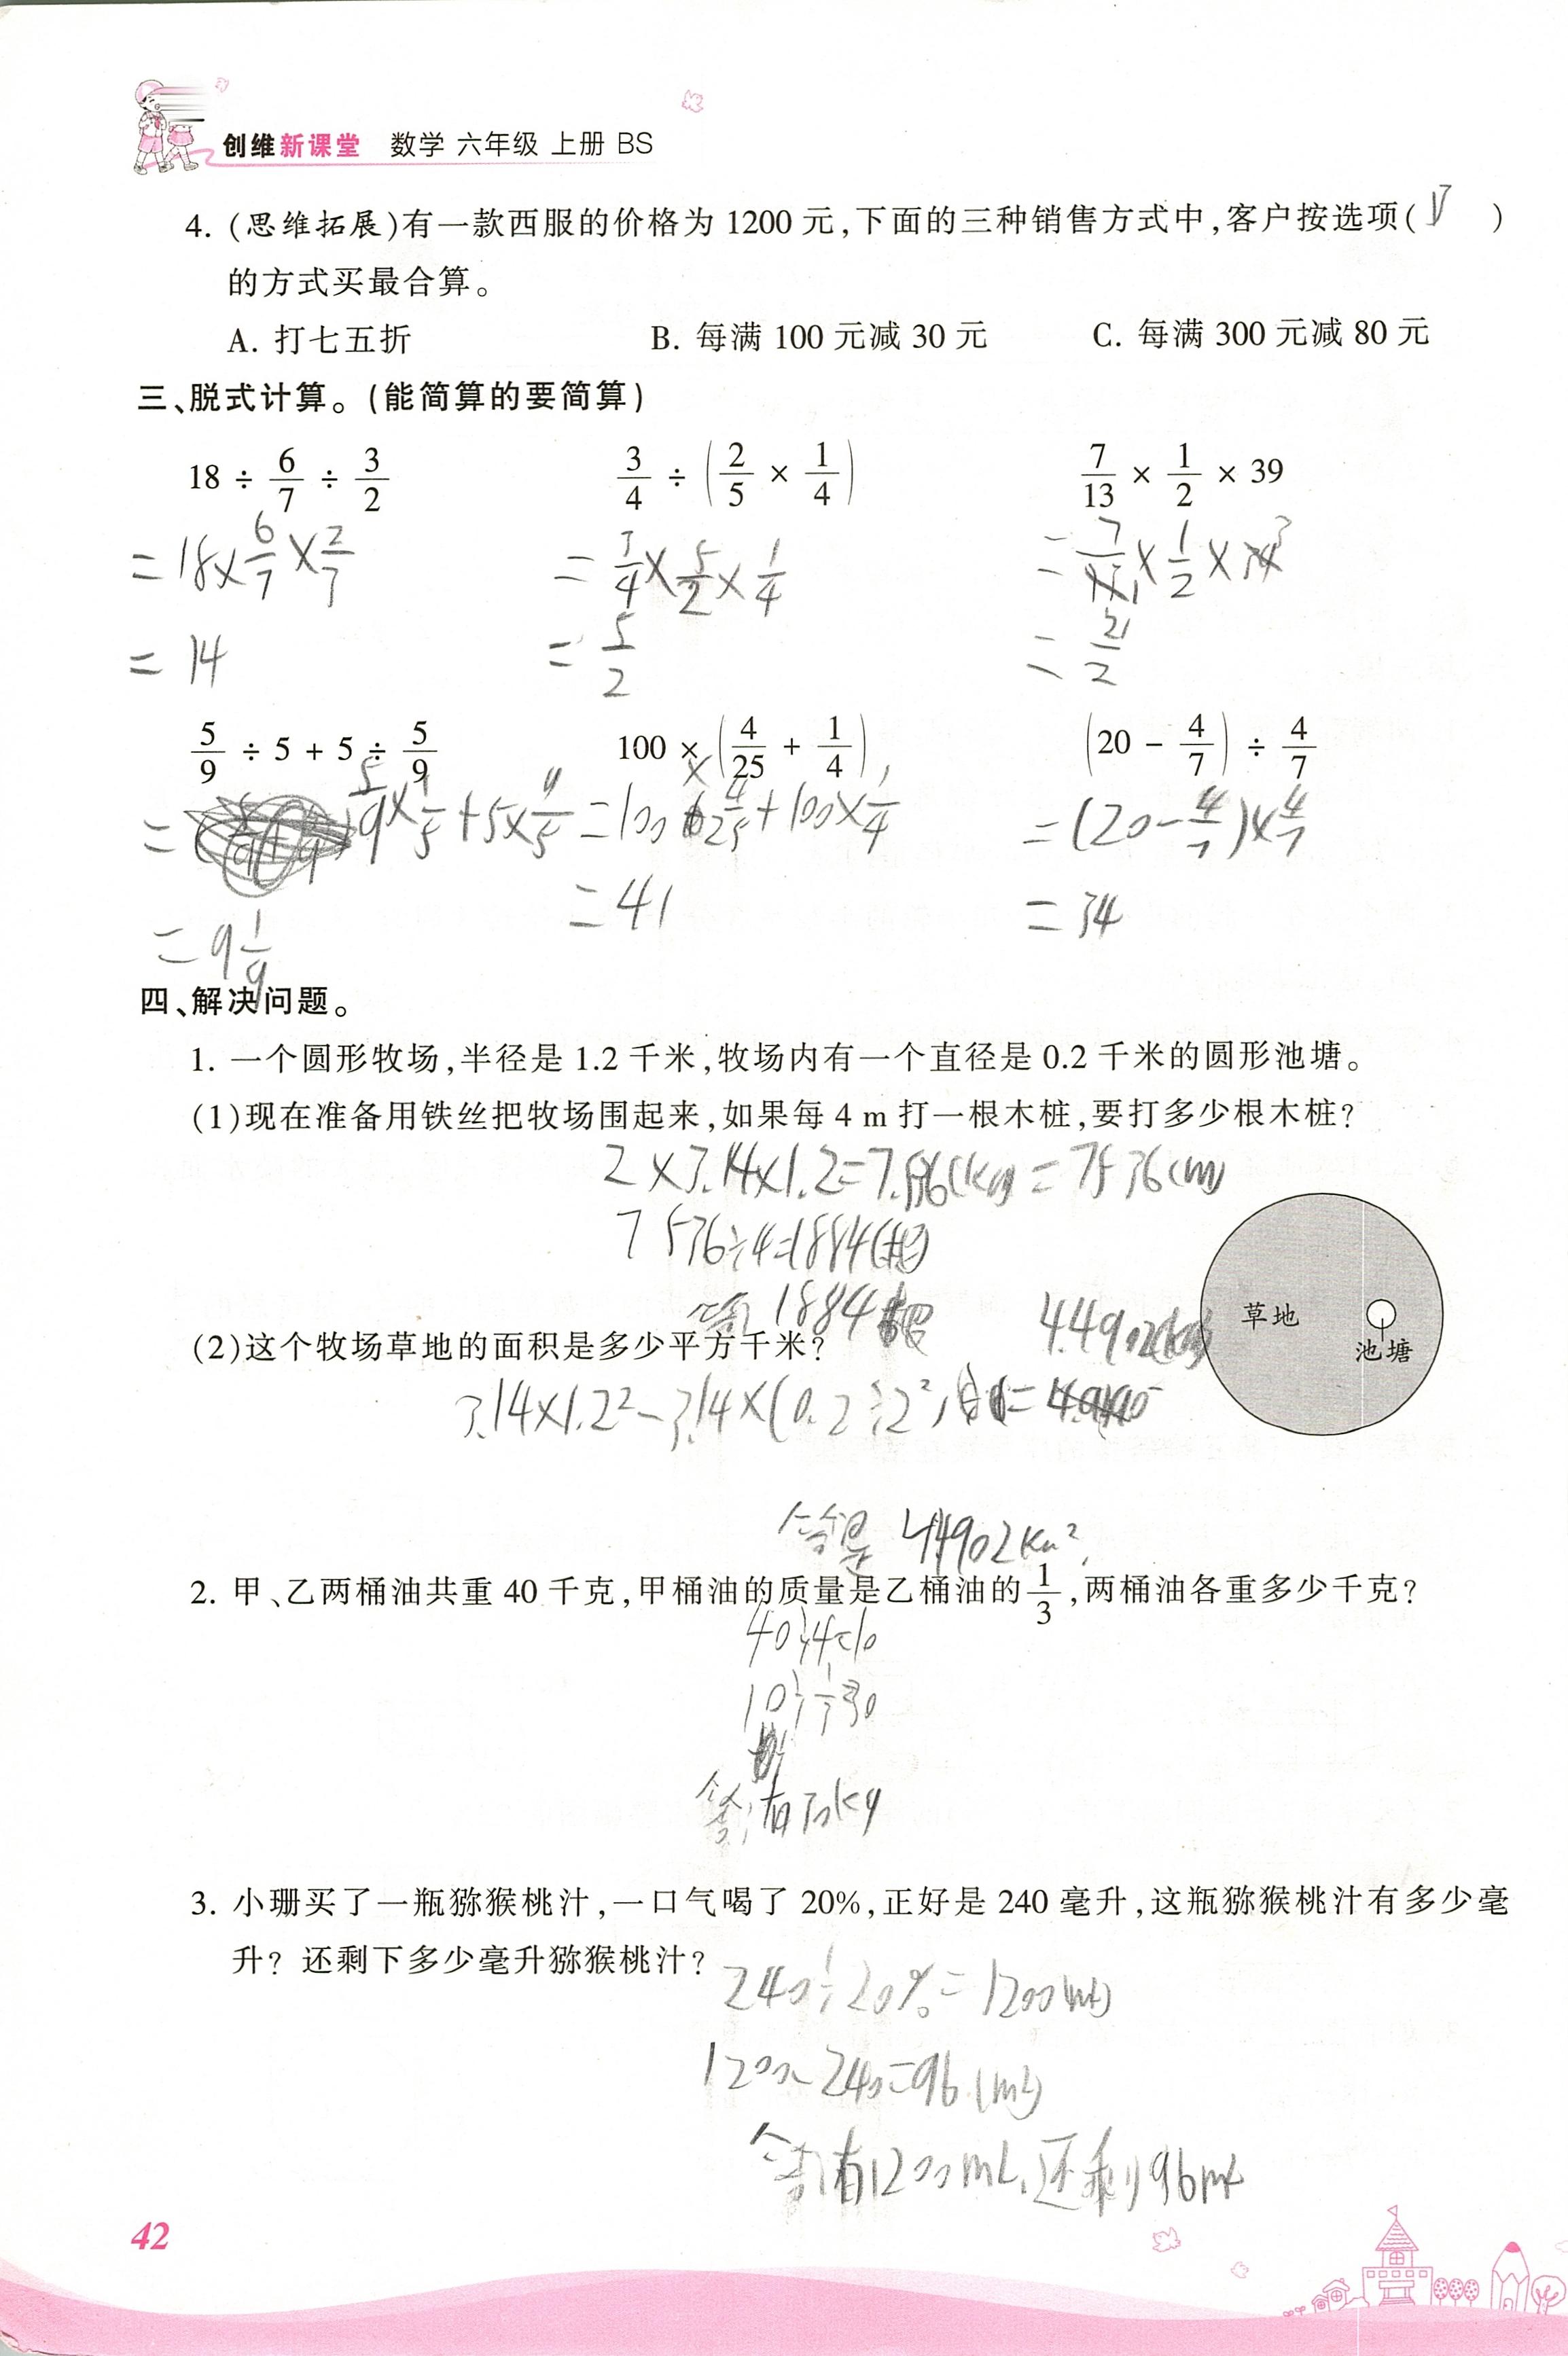 创维新课堂 数学 六年级 上册 BS
4. (思维拓展)有一款西服的价格为 1200 元,下面的三种销售方式中,客户按选项( )
的方式买最合算。
A. 打七五折 B. 每满 100 元减 30 元 C. 每满 300 元减 80 元
三、脱式计算。(能简算的要简算)
18 ÷ 6/7 ÷ 3/2 3/4 ÷ (2/5 × 1/4) 7/13 × 1/2 × 39
= 18 × 6/7 × 2/7 = 3/4 × 5/2 × 1/4 = 7/ × 1/2 × 3
= 14 = 5/2 = 21/2
5/9 ÷ 5 + 5 ÷ 5/9 100 × (4/25 + 1/4) (20 - 4/7) ÷ 4/7
= 5/9 × 1/5 + 5 × 9/5 = 100 × 4/25 + 100 × 1/4 = (20 - 4/7) × 4/7
= 9 1/9 = 41 = 34
四、解决问题。
1. 一个圆形牧场,半径是 1.2 千米,牧场内有一个直径是 0.2 千米的圆形池塘。
(1)现在准备用铁丝把牧场围起来,如果每 4 m 打一根木桩,要打多少根木桩?
2 × 3.14 × 1.2 = 7.536(km) = 7536(m)
7536 ÷ 4 = 1884(根)
答 1884根
(2)这个牧场草地的面积是多少平方千米?
4.4902(km²)
草地
池塘
3.14 × 1.2² - 3.14 × (0.2 ÷ 2²) =
答是 4.4902 km²
2. 甲、乙两桶油共重 40 千克,甲桶油的质量是乙桶油的 1/3,两桶油各重多少千克?
40 ÷ 4 = 10
10 ÷ 1/3 30
答:有30kg
3. 小珊买了一瓶猕猴桃汁,一口气喝了 20%,正好是 240 毫升,这瓶猕猴桃汁有多少毫
升? 还剩下多少毫升猕猴桃汁?
240 ÷ 20% = 1200(ml)
1200 - 240 = 96(mL)
答:有1200mL,还剩96mL
42